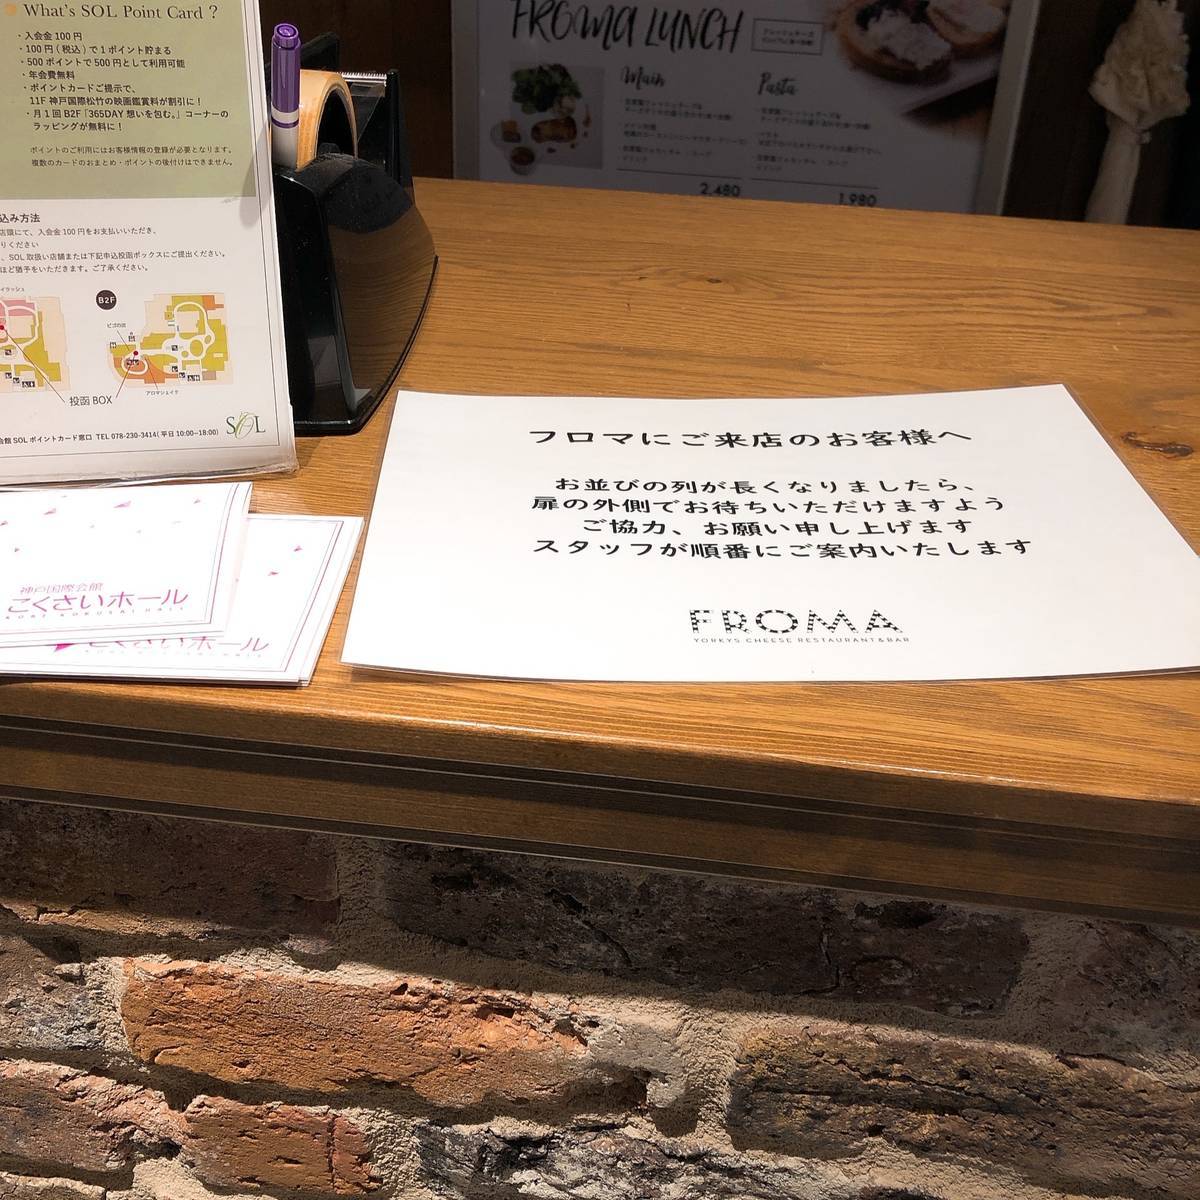 What's SOL Point Card ?
・入会金 100 円
・100 円 ( 税込 ) で 1 ポイント貯まる
・500 ポイントで 500 円として利用可能
・年会費無料
・ポイントカードご提示で、
11F 神戸国際松竹の映画鑑賞料が割引に！
・月 1 回 B2F「365DAY 想いを包む。」コーナーの
ラッピングが無料に！
ポイントのご利用にはお客様情報の登録が必要となります。
複数のカードのおまとめ・ポイントの後付けはできません。
込み方法
店頭にて、入会金 100 円をお支払いいただき、
りください
、SOL 取扱い店舗または下記申込投函ボックスにご提出ください。
ほど猶予をいただきます。ご了承ください。
B2F
投函 BOX
アロマジェイケ
会館 SOL ポイントカード窓口 TEL 078-230-3414( 平日 10:00~18:00)
SOL
神戸国際会館
こくさいホール
KOBE KOKUSAI HALL
こくさいホール
FROMA LUNCH
Main
Pasta
2,480
1,980
フロマにご来店のお客様へ
お並びの列が長くなりましたら、
扉の外側でお待ちいただけますよう
ご協力、お願い申し上げます
スタッフが順番にご案内いたします
FROMA
YORKYS CHEESE RESTAURANT&BAR